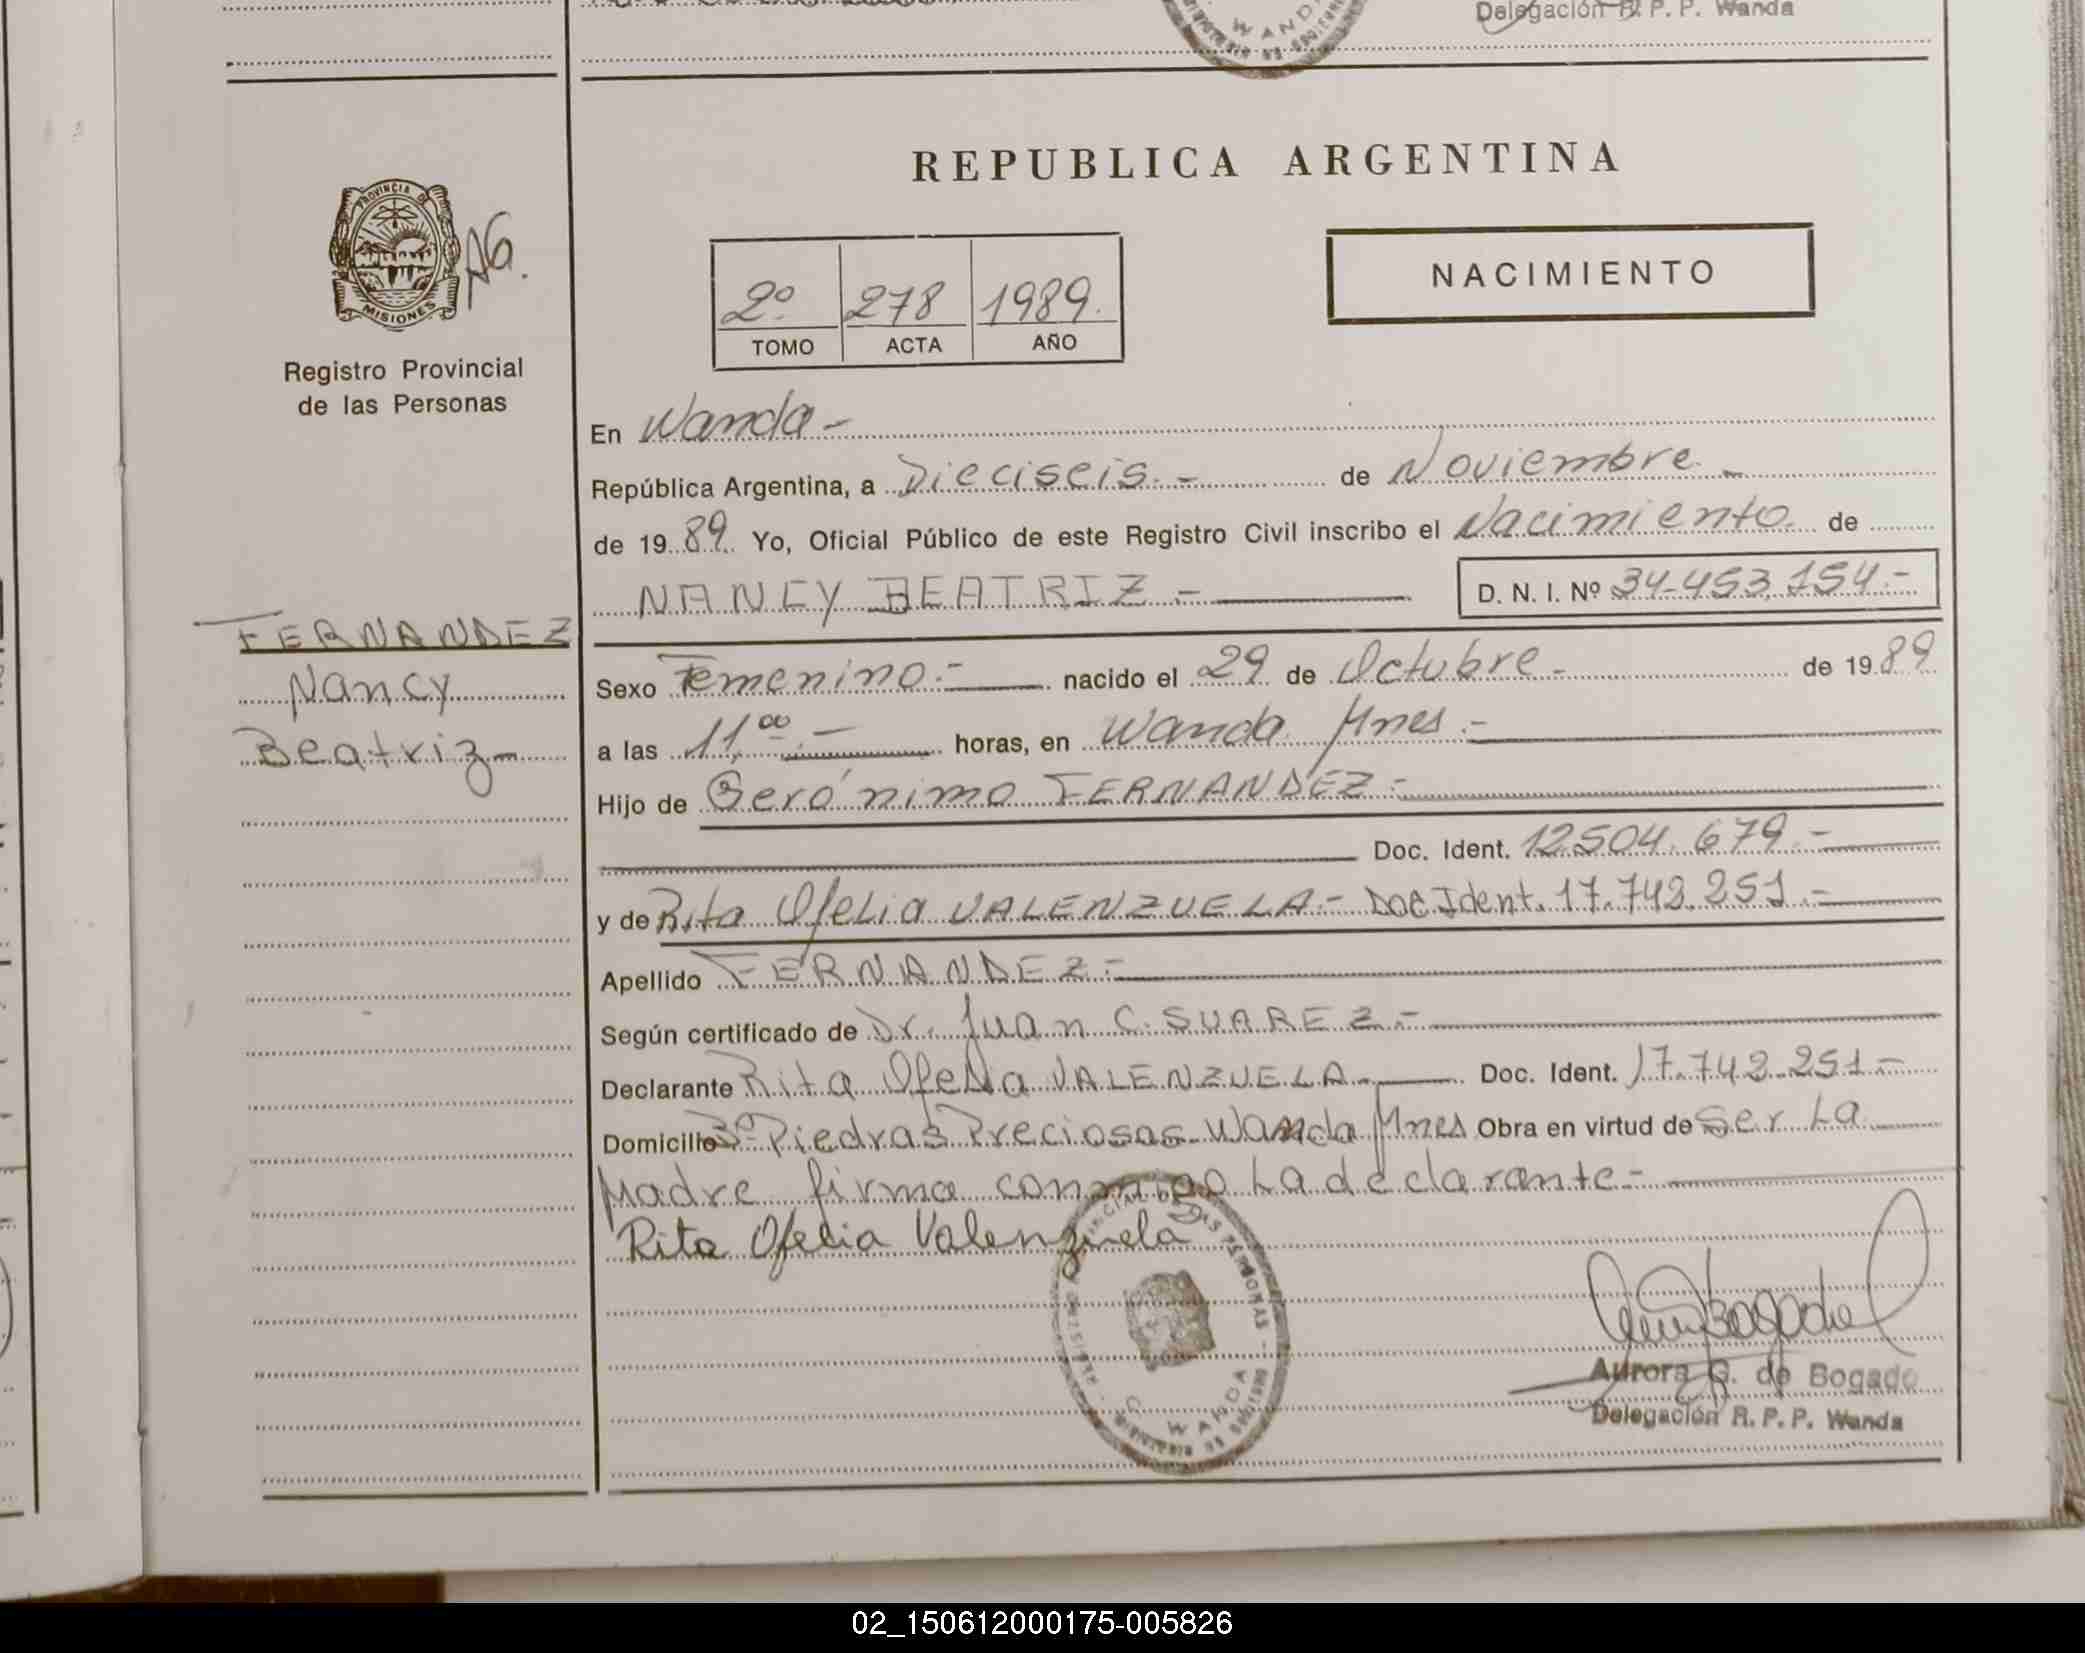 Delegación R. P. P. Wanda
WANDA
REPUBLICA ARGENTINA
PROVINCIA DE
MISIONES
AG.
Registro Provincial
de las Personas
2º 278 1989.
TOMO ACTA AÑO
NACIMIENTO
En Wanda -
República Argentina, a Dieciseis. - de Noviembre. -
de 1989. Yo, Oficial Público de este Registro Civil inscribo el Nacimiento. de
NANCY BEATRIZ. - D. N. I. Nº 34.453.154.-
FERNANDEZ
Nancy
Beatriz-
Sexo Femenino.- nacido el 29 de Octubre - de 1989
a las 11,00.- horas, en Wanda Mnes.-
Hijo de Gerónimo FERNANDEZ.-
Doc. Ident. 12504.679.-
y de Rita Ofelia VALENZUELA.- Doc Ident. 17.742.251.-
Apellido FERNANDEZ.-
Según certificado de Dr. Juan C. SUAREZ.-
Declarante Rita Ofelia VALENZUELA.- Doc. Ident. 17.742.251.-
Domicilio Bº Piedras Preciosas Wanda Mnes Obra en virtud de Ser La
Madre firma conmigo La declarante-
Rita Ofelia Valenzuela
WANDA
Aurora G. de Bogado
Delegación R. P. P. Wanda
02_150612000175-005826